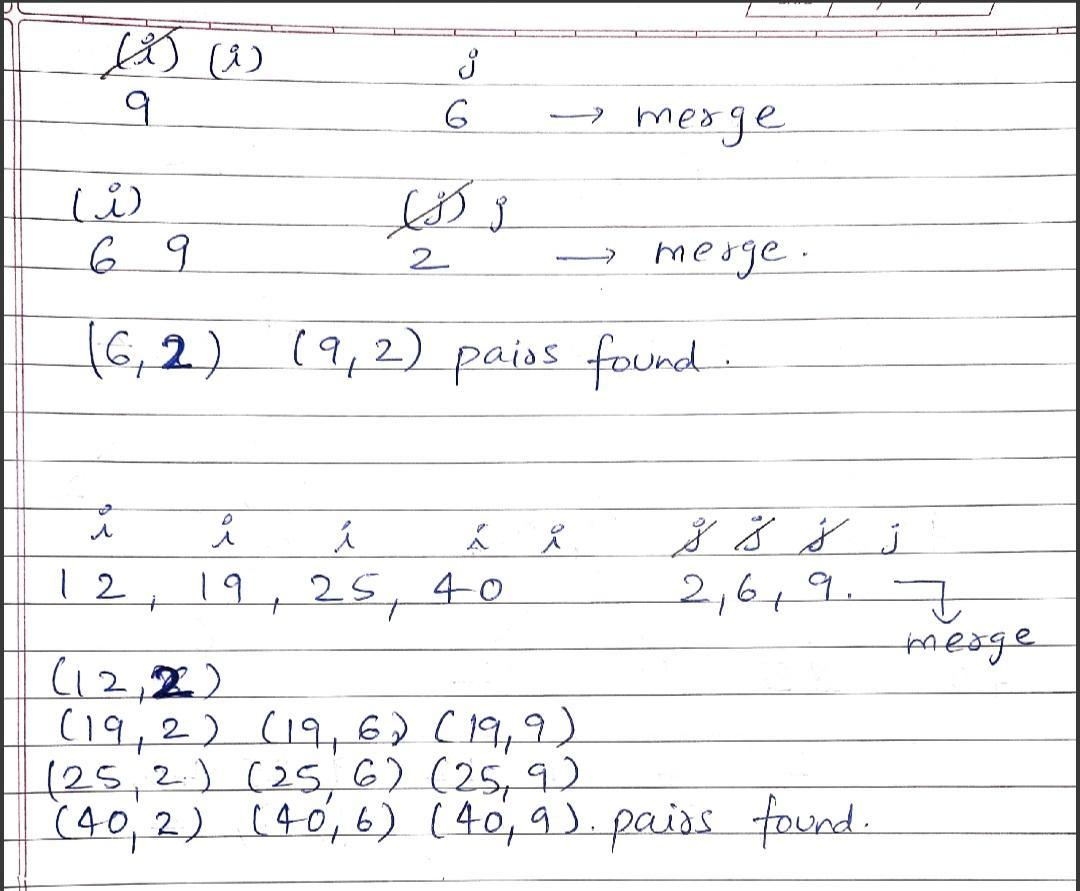 (i) (i) j
9 6 → merge
(i) (j) j
6 9 2 → merge.
(6,2) (9,2) pairs found.
i i i i i j j j j
12, 19, 25, 40 2,6,9.
merge
(12,2)
(19,2) (19,6) (19,9)
(25,2) (25,6) (25,9)
(40,2) (40,6) (40,9). pairs found.